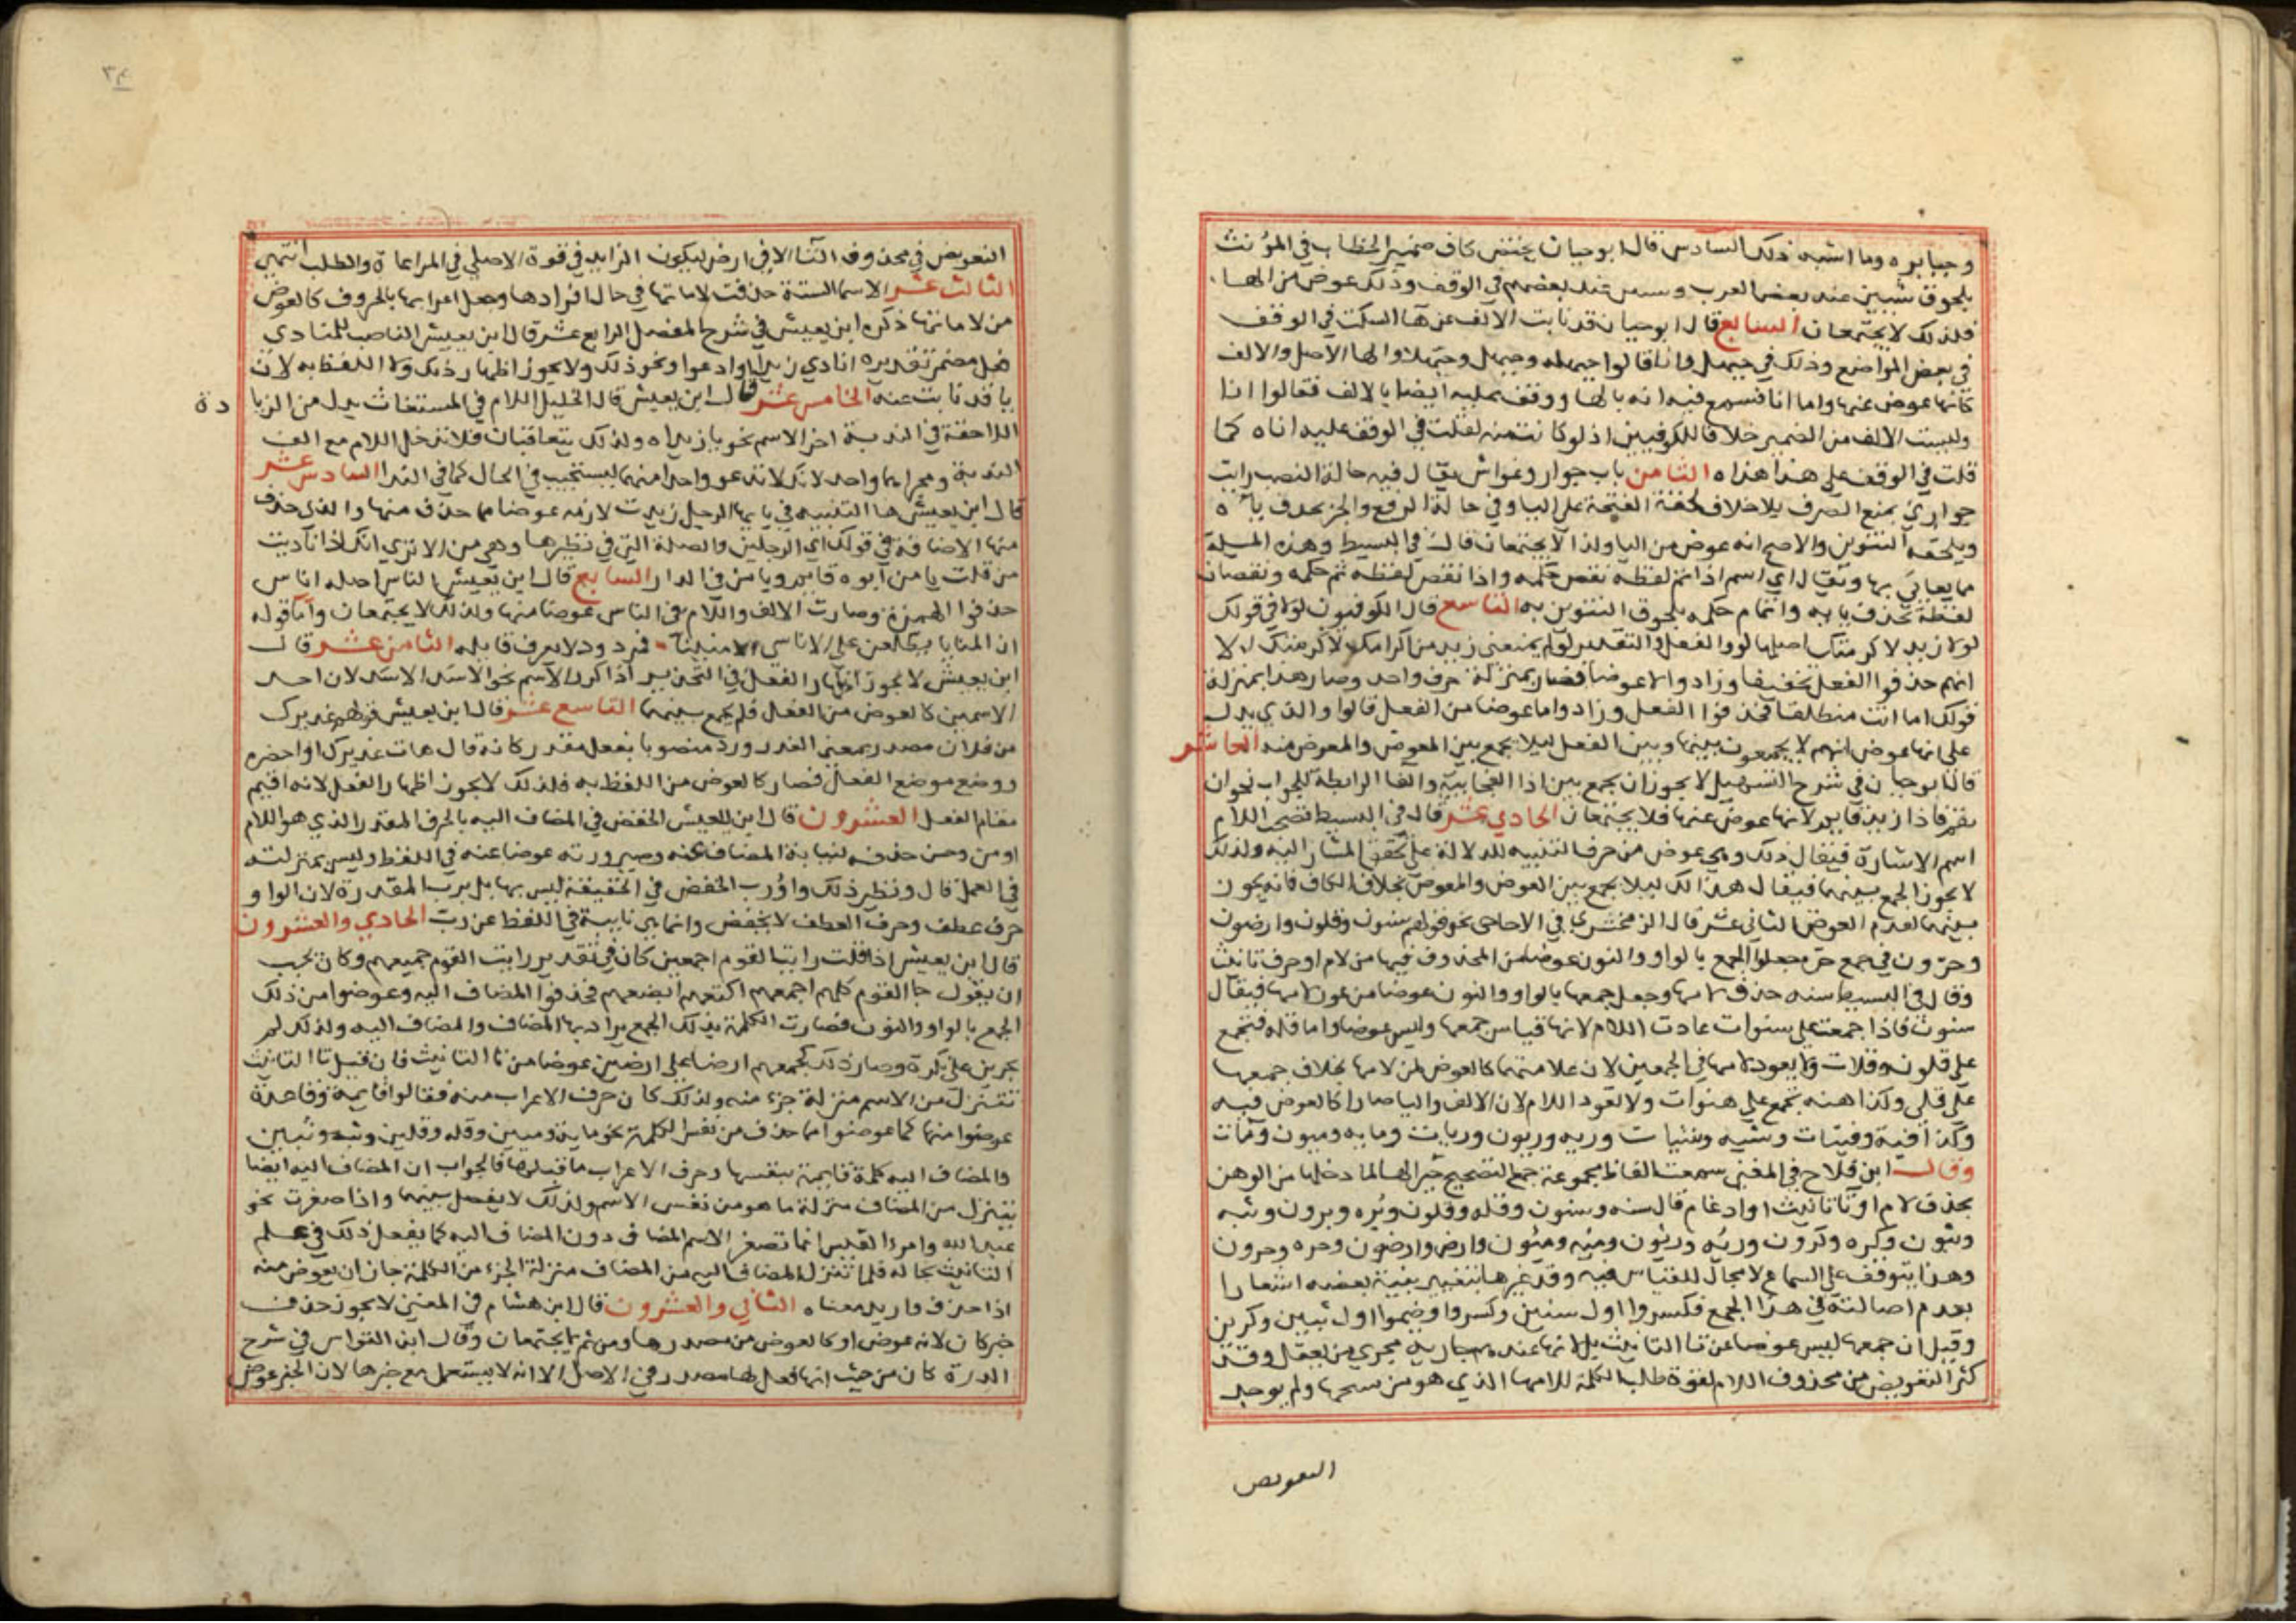 وجبابره وما اشبه ذلك السادس قال ابوحيان يختص كاف ضمير الخطاب في المؤنث
بلحوق شين عند بعض العرب وسين عند بعضهم في الوقف وذلك عوض من الهاء
فلذلك لا يجتمعان السابع قال ابوحيان قد نابت الالف عن هآ السكت في الوقف
في بعض المواضع وذلك في حيهل وانا قالوا حيهله وحيهل وحيهلا والها الاصل والالف
كانها عوض عنها واما انا فسمع فيه انه بالها ووقف عليه ايضا بالالف فقالوا انا
وليست الالف من الضمير خلافا للكوفيين اذ لو كانت منه لقلت في الوقف عليه اناه كما
قلت في الوقف على هذا هذاه الثامن باب جوار وغواش يقال فيه حالة النصب رايت
جواري بمنع الصرف بلا خلاف لخفة الفتحة على اليا وفي حالة الرفع والجر بحذف يائه
ويلحقه التنوين والاصح انه عوض من اليا ولذا لا يجتمعان قال في البسيط وهذه المسيلة
مما يعايي بها ويقال اي اسم اذا تم لفظه نقص حكمه واذا نقص لفظه تم حكمه ونقصان
لفظه بحذف يايه واتمام حكمه بلحوق التنوين به التاسع قال الكوفيون لولا في قولك
لولا زيد لاكرمتك اصلها لو والفعل والتقدير لو لم يمنعني زيد من اكرامك لاكرمتك الا
انهم حذفوا الفعل تخفيفا وزادوا لا عوضا فصار بمنزلة حرف واحد وصار هذا بمنزلة
قولك اما انت منطلقا فحذفوا الفعل وزادوا ما عوضا من الفعل قالوا والذي يدل
على انها عوض انهم لا يجمعون بينها وبين الفعل ليلا يجمع بين العوض والمعوض منه العاشر
قال ابوحيان في شرح التسهيل لا يجوز ان يجمع بين اذا الفجايية والفا الرابطة للجواب نحو ان
يقم فاذا زيد قايم لانها عوض عنها فلا يجتمعان الحادي عشر قال في البسيط تصحب اللام
اسم الاشارة فيقال ذلك وهي عوض من حرف التنبيه للدلالة على تحقق المشار اليه ولذلك
لا يجوز الجمع بينهما فيقال هذا لك ليلا يجمع بين العوض والمعوض بخلاف الكاف فانه يجوز
بينهما لعدم العوض الثاني عشر قال الزمخشري في الاحاجي نحو قولهم سنون وقلون وارضون
وحرون في جمع حر جعلوا الجمع بالواو والنون عوضا من المحذوف فيها من لام او حرف تانيث
وقال في البسيط سنه حذف لامها وجعل جمعها بالواو والنون عوضا من عود لامها فيقال
سنون فاذا جمعت على سنوات عادت اللام لانها قياس جمعها وليس عوضا واما قله فتجمع
على قلون وقلات ولا يعود لامها في الجمعين لان علامتهما كالعوض من لامها بخلاف جمعها
على قلى وكذا هنه تجمع على هنوات ولا تعود اللام لان الالف واليا صارا كالعوض فيه
وكذا فية وفيات وشيه وشيات وريه وريون وريات ومايه وميون ومات
وقال ابن فلاح في المغني سمعت الفاظ مجموعة جمع التصحيح جبرا لها لما دخلها من الوهن
بحذف لام او تا تانيث او ادغام قال سنه وسنون وقله وقلون وبره وبرون وثبه
وثبون وكره وكرون وريه وريون وميه وميون وارض وارضون وحره وحرون
وهذا يتوقف على السماع لا مجال للقياس فيه وقد غيرها بتغيير بنية بعضه اشعارا
بعدم اصالته في هذا الجمع فكسروا اول سنين وكسروا وضموا اول ثبين وكرين
وقيل ان جمعها ليس عوضا عن تا التانيث بل لانها عندهم جاريه مجري من يعقل وقد
كثر التعويض من محذوف اللام لقوة طلب الكلمة للامها الذي هو من سنخها ولم يوجد
التعويض
٣٤
التعويض في محذوف التا الا في ارض ليكون الزايد في قوة الاصلي في المراعاة والطلب انتهى
الثالث عشر الاسما الستة حذفت لاماتها في حال افرادها وجعل اعرابها بالحروف كالعوض
من لاماتها ذكره ابن يعيش في شرح المفصل الرابع عشر قال ابن يعيش الناصب للمنادي
فعل مضمر تقديره انادي زيدا او ادعوا ونحو ذلك ولا يجوز اظهار ذلك ولا اللفظ به لان
يا قد نابت عنه الخامس عشر قال ابن يعيش قال الخليل اللام في المستغاث بدل من الزيا
دة
اللاحقة في الندبة اخر الاسم نحو يا زيداه ولذلك يتعاقبان فلا تدخل اللام مع الف
الندبة ومجراهما واحد لانك لا تدعو واحدا منهما ليستجيب في الحال كما في الندا السادس عشر
قال ابن يعيش ها التنبيه في يا ايها الرجل زيدت لازمه عوضا مما حذف منها والذي حذف
منها الاضافة في قولك اي الرجلين والصلة التي في نظيرها وهي من الا تري انك اذا ناديت
من قلت يا من ابوه قايم ويا من في الدار السابع قال ابن يعيش الناس اصله اناس
حذفوا الهمزة وصارت الالف واللام في الناس عوضا منها ولذلك لا يجتمعان واما قوله
ان المنايا يطلعن على الاناس الامنينا فمردود لا يعرف قايله الثامن عشر قال
ابن يعيش لا يجوز اظهار الفعل في التحذير اذا كرر الاسم نحو الاسد الاسد لان احد
الاسمين كالعوض من الفعل فلم يجمع بينهما التاسع عشر قال ابن يعيش قولهم عذيرك
من فلان مصدر بمعنى العذر ورد منصوبا بفعل مقدر كانه قال هات عذيرك او احضره
ووضع موضع الفعل فصار كالعوض من اللفظ به فلذلك لا يجوز اظهار الفعل لانه اقيم
مقام الفعل العشرون قال ابن يعيش الخفض في المضاف اليه بالحرف المقدر الذي هو اللام
او من وحسن حذفه لنيابة المضاف عنه وصيرورته عوضا عنه في اللفظ وليس بمنزلته
في العمل قال ونظير ذلك واو رب الخفض في الحقيقة ليس بها بل برب المقدرة لان الواو
حرف عطف وحرف العطف لا يخفض وانما هي نايبة في اللفظ عن رب الحادي والعشرون
قال ابن يعيش اذا قلت رايت القوم اجمعين كان في تقدير رايت القوم جميعهم وكان يجب
ان يقول جا القوم كلهم اجمعهم اكتعهم ابصعهم فحذفوا المضاف اليه وعوضوا من ذلك
الجمع بالواو والنون فصارت الكلمة بذلك الجمع يراد بها المضاف والمضاف اليه ولذلك لم
يجرين على نكرة وصار ذلك كجمعهم ارضا على ارضين عوضا من تا التانيث فان قيل تا التانيث
تتنزل من الاسم منزلة جزء منه ولذلك كان حرف الاعراب منه فقالوا قايمة وقاعدة
عوضوا منها كما عوضوا مما حذف من نفس الكلمة نحو ماية وميين وقله وقلين وثبه وثبين
والمضاف اليه كلمة قايمة بنفسها وحرف الاعراب ما قبلها فالجواب ان المضاف اليه ايضا
يتنزل من المضاف منزلة ما هو من نفس الاسم ولذلك لا يفصل بينهما واذا صغرت نحو
عبد الله وامرء القيس انما تصغر الاسم المضاف دون المضاف اليه كما يفعل ذلك في علم
التانيث بحاله فلما تنزل المضاف اليه من المضاف منزلة الجزء من الكلمة جاز ان يعوض منه
اذا حذف واريد معناه الثاني والعشرون قال ابن هشام في المغني لا يجوز حذف
خبر كان لانه عوض او كالعوض من مصدرها ومن ثم لا يجتمعان وقال ابن القواس في شرح
الدرة كان من حيث انها فعل لها مصدر في الاصل الا انه لا يستعمل مع خبرها لان الخبر عوض